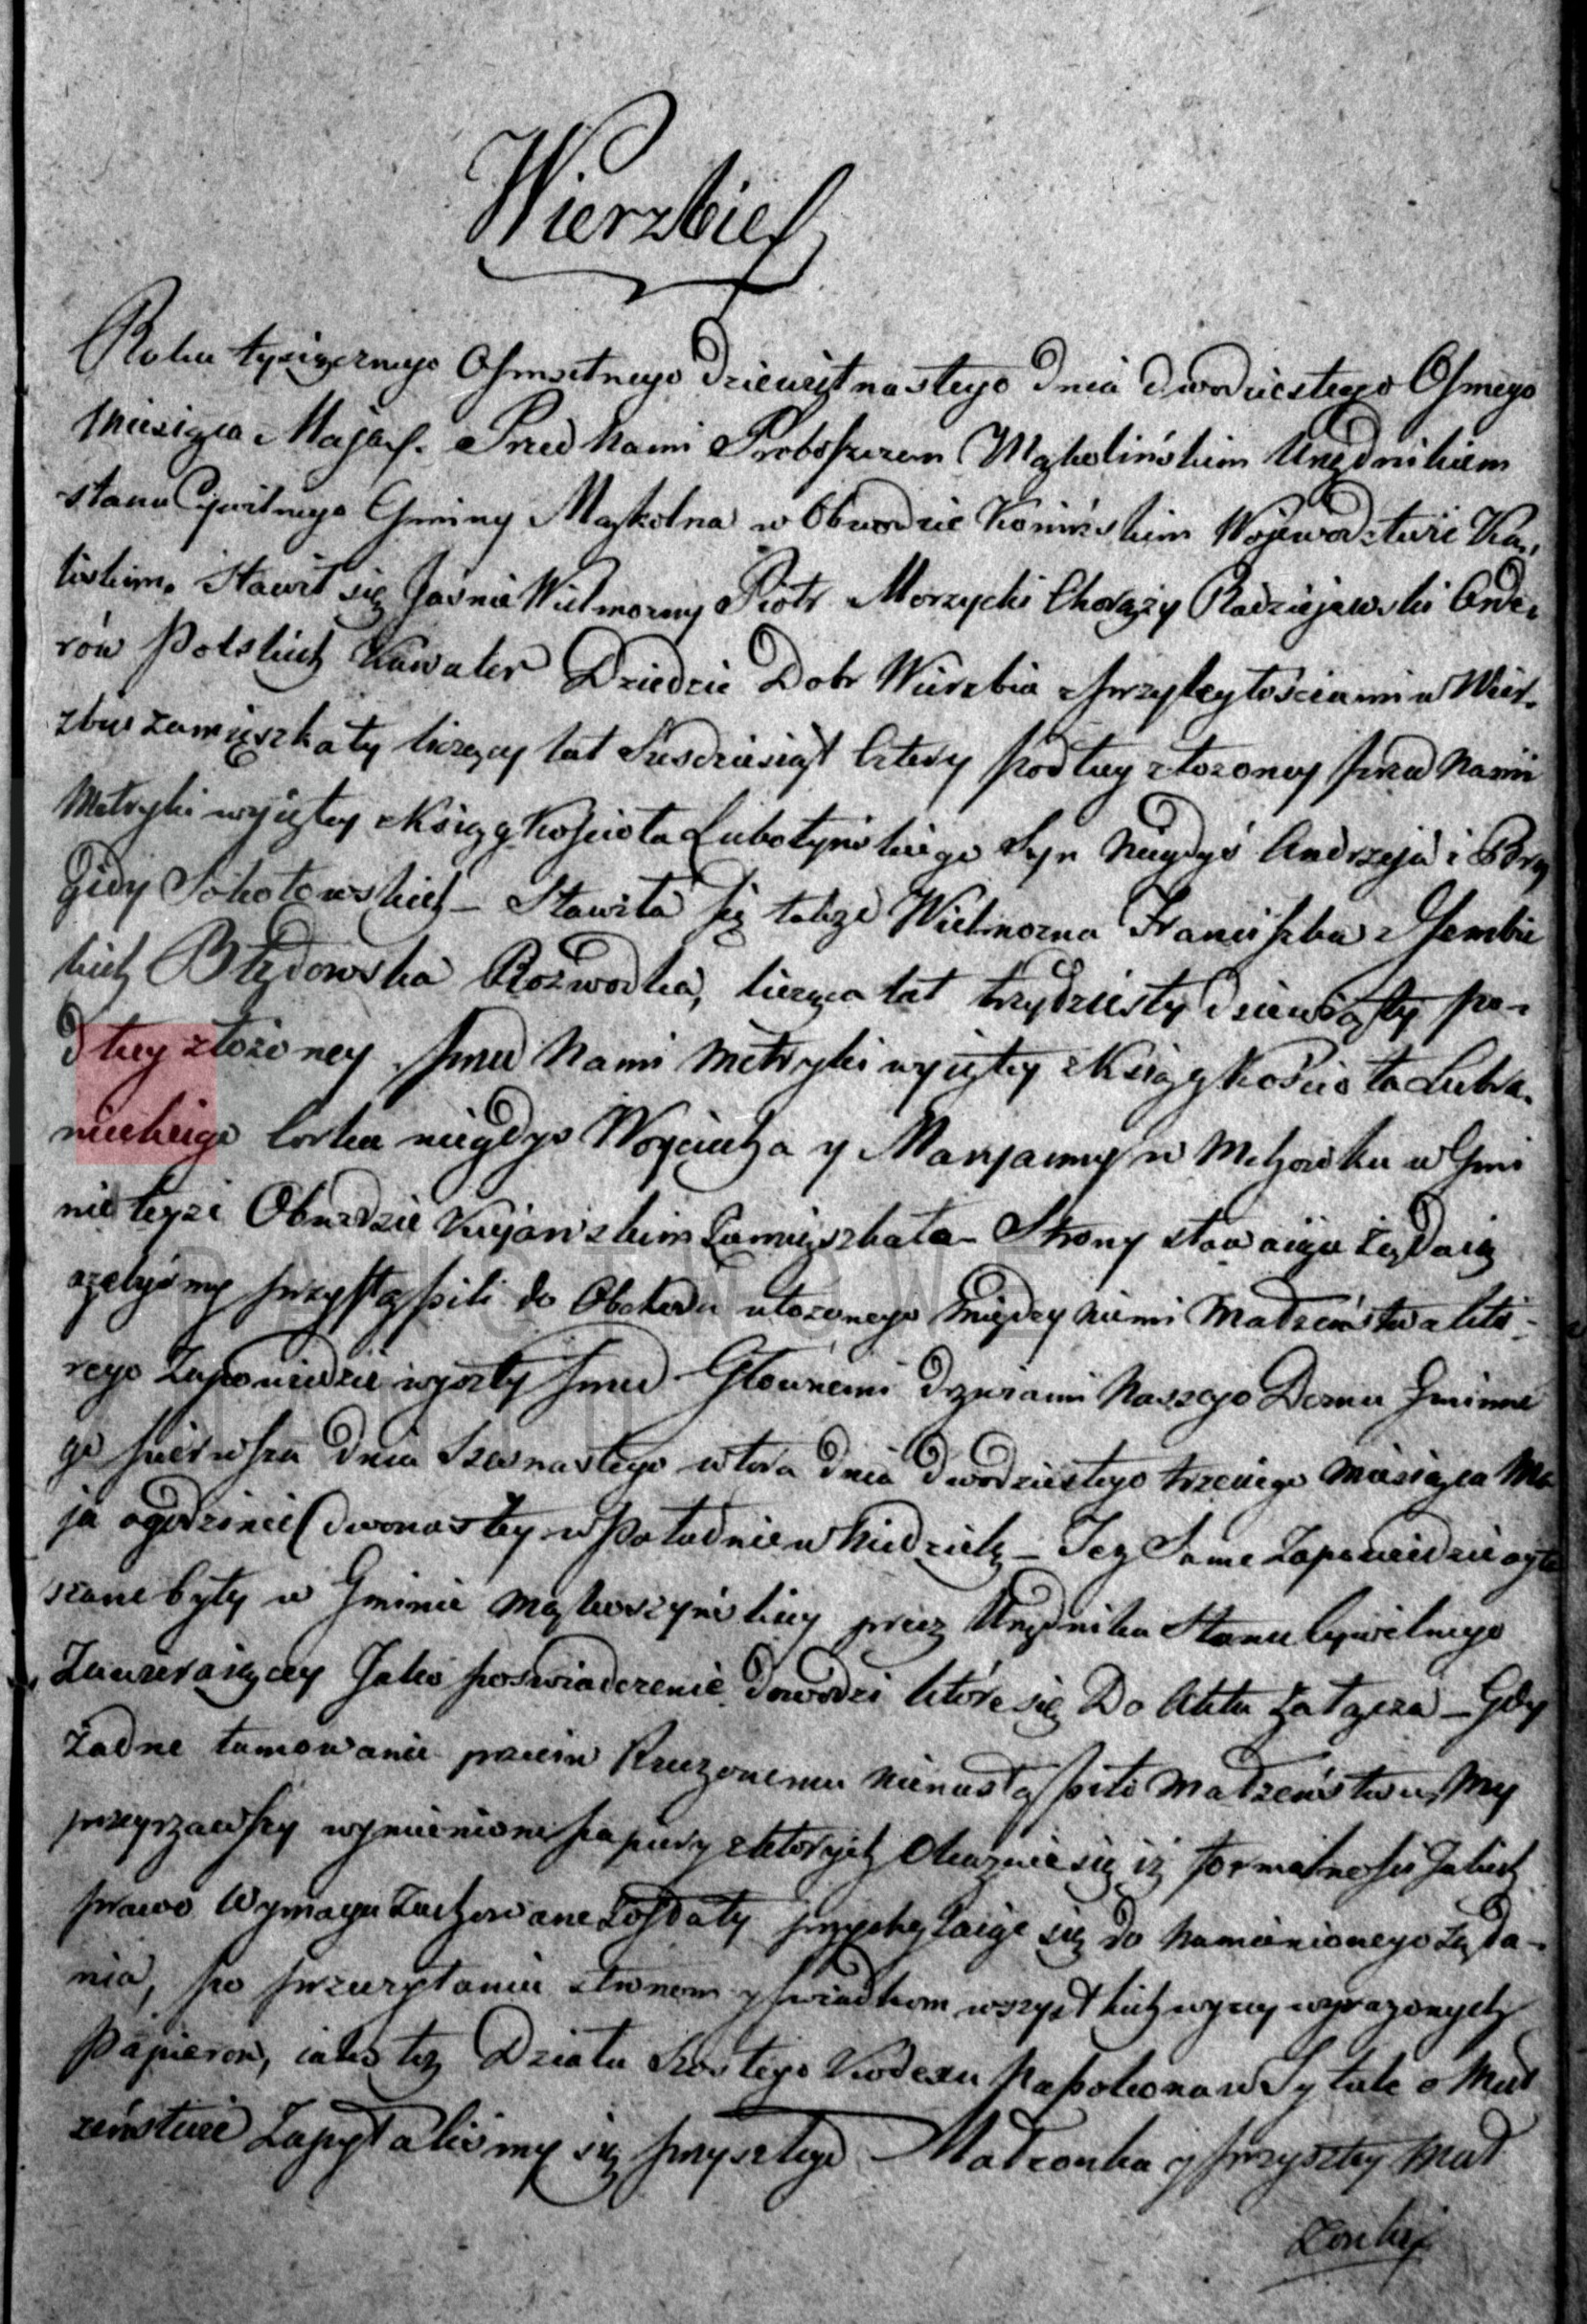 Wierzbie
Roku tysiącznego Osmsetnego dziewiętnastego dnia dwudziestego Osmego
Miesiąca Maja. Przed Nami Proboszczem Mąkolińskim Urzędnikiem
stanu Cywilnego Gminy Mąkolna w Obwodzie Konińskim Wojewodztwie Ka,,
liskim. Stawił się Jasnie Wielmozny Piotr Morzycki Chorązy Radziejewski Orde,
rów Polskich Kawaler Dziedzic Dobr Wierzbia z przyległościami w Wier,
zbiu zamięszkały liczący lat Szesdziesiąt cztery podług złozoney przed Nami
Metryki wyiętey z Ksiąg Kościoła Lubotyńskiego Syn niegdyś Andrzeja i Bry
gidy Sokołowskich – Stawiła się także Wielmozna Franciszka z Gembic
kich Błędowska Rozwodka, licząca lat trzydziesty dziewiąty po-
dług złożoney przed Nami Metryki wyiętey z Ksiąg Kościoła Lubra,
nieckiego Corka niegdyś Woyciecha y Maryanny w w Gmi
nie teyże Obwodzie Kujawskim Zamięszkała – Strony stawaiące żądaią
azebyśmy przystąpili do Obchodu ułozonego między niemi Małżeństwa któ-
rego Zapowiedzie wyszły przed Głównemi drzwiami Naszego Domu Gminne
go pierwsza dnia Szesnastego wtora dnia dwudziestego trzeciego miesiąca Ma
ja o godzinie dwunastey w Południe w Niedzielę – Tez Same Zapowiedzie ogło
szone były w Gminie przez Urzędnika Stanu Cywilnego
Jako poswiadczenie dowodzi które się Do Aktu załącza – Gdy
żadne tamowanie przeciw Rzeczonemu nienastąpiło Małżeństwu, My
przeyrzawszy wymienione papiery z których Okazuie się iż formalności Jakich
prawo Wymaga Zachowane Zostały przychylaiąc się do namienionego żąda-
nia, po przeczytaniu stronom y świadkom wszystkich wyzey wyrazonych
Papierow, iako też Działu Szostego Kodexu Napoleona w Tytule o Mał
żeństwie Zapytaliśmy się przyszłego Małżonka y przyszłey Mał
żonki